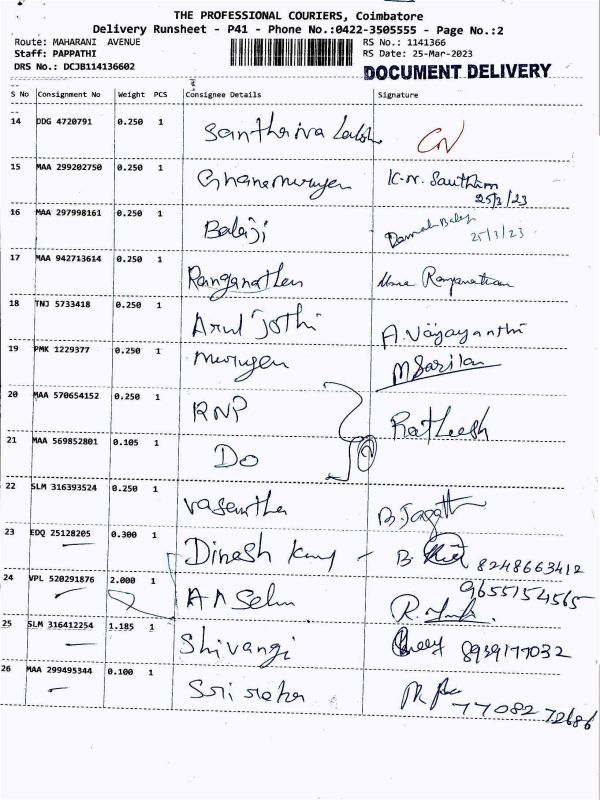 THE PROFESSIONAL COURIERS, Coimbatore
Delivery Runsheet - P41 - Phone No.:0422-3505555 - Page No.:2
Route: MAHARANI AVENUE RS No.: 1141366
Staff: PAPPATHI RS Date: 25-Mar-2023
DRS No.: DCJB114136602 DOCUMENT DELIVERY
S No Consignment No Weight PCS Consignee Details Signature
14 DDG 4720791 0.250 1
15 MAA 299202750 0.250 1 Ghanamurugen K.N. Sautham
25/3/23
16 MAA 297998161 0.250 1 Balaji
25/3/23
17 MAA 942713614 0.250 1 Ranganathen Uma Ranganathan
18 TNJ 5733418 0.250 1 Arul Jothi A. Vaijayanthi
19 PMK 1229377 0.250 1 Murugen
20 MAA 570654152 0.250 1 RNP Ratheesh
21 MAA 569852801 0.105 1 Do
22 SLM 316393524 0.250 1 Vasantha B. Jagath
23 EDQ 25128205 0.300 1 Dinesh Kumy - B 8248663412
24 VPL 520291876 2.000 1 A A Selm 9655754565
25 SLM 316412254 1.185 1 Shivangi 8939177032
26 MAA 299495344 0.100 1 77082 72686